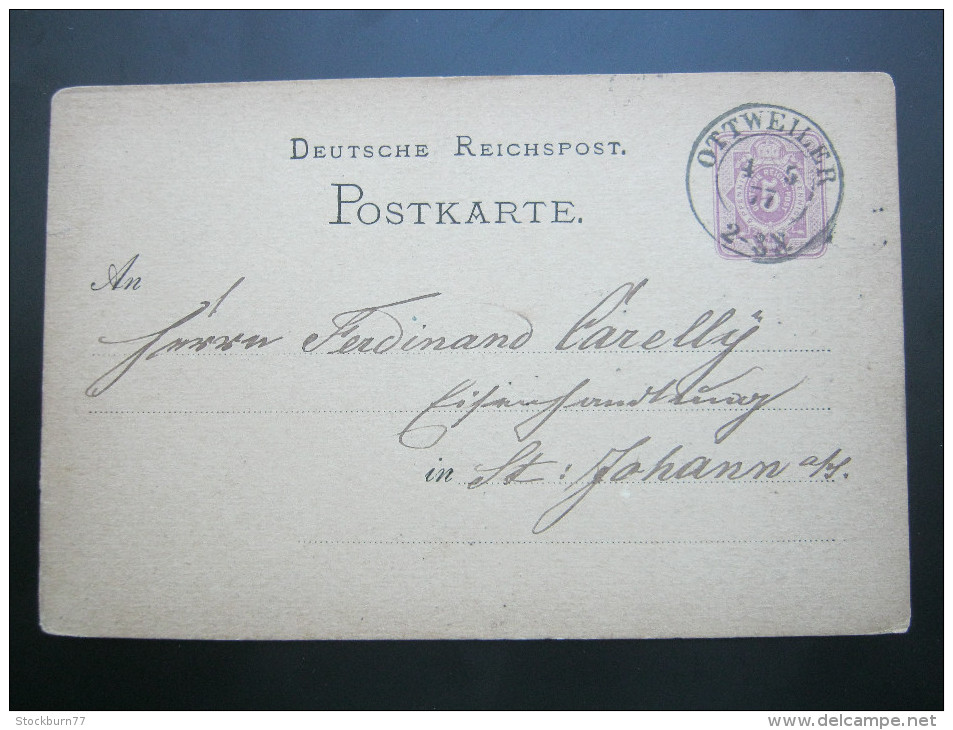 DEUTSCHE REICHSPOST.
POSTKARTE.
OTTWEILER
4 5
77
2-3N
An
Herrn Ferdinand Carelly
Eisenhandlung
in St: Johann a/s.
Stockburn77
www.delcampe.net